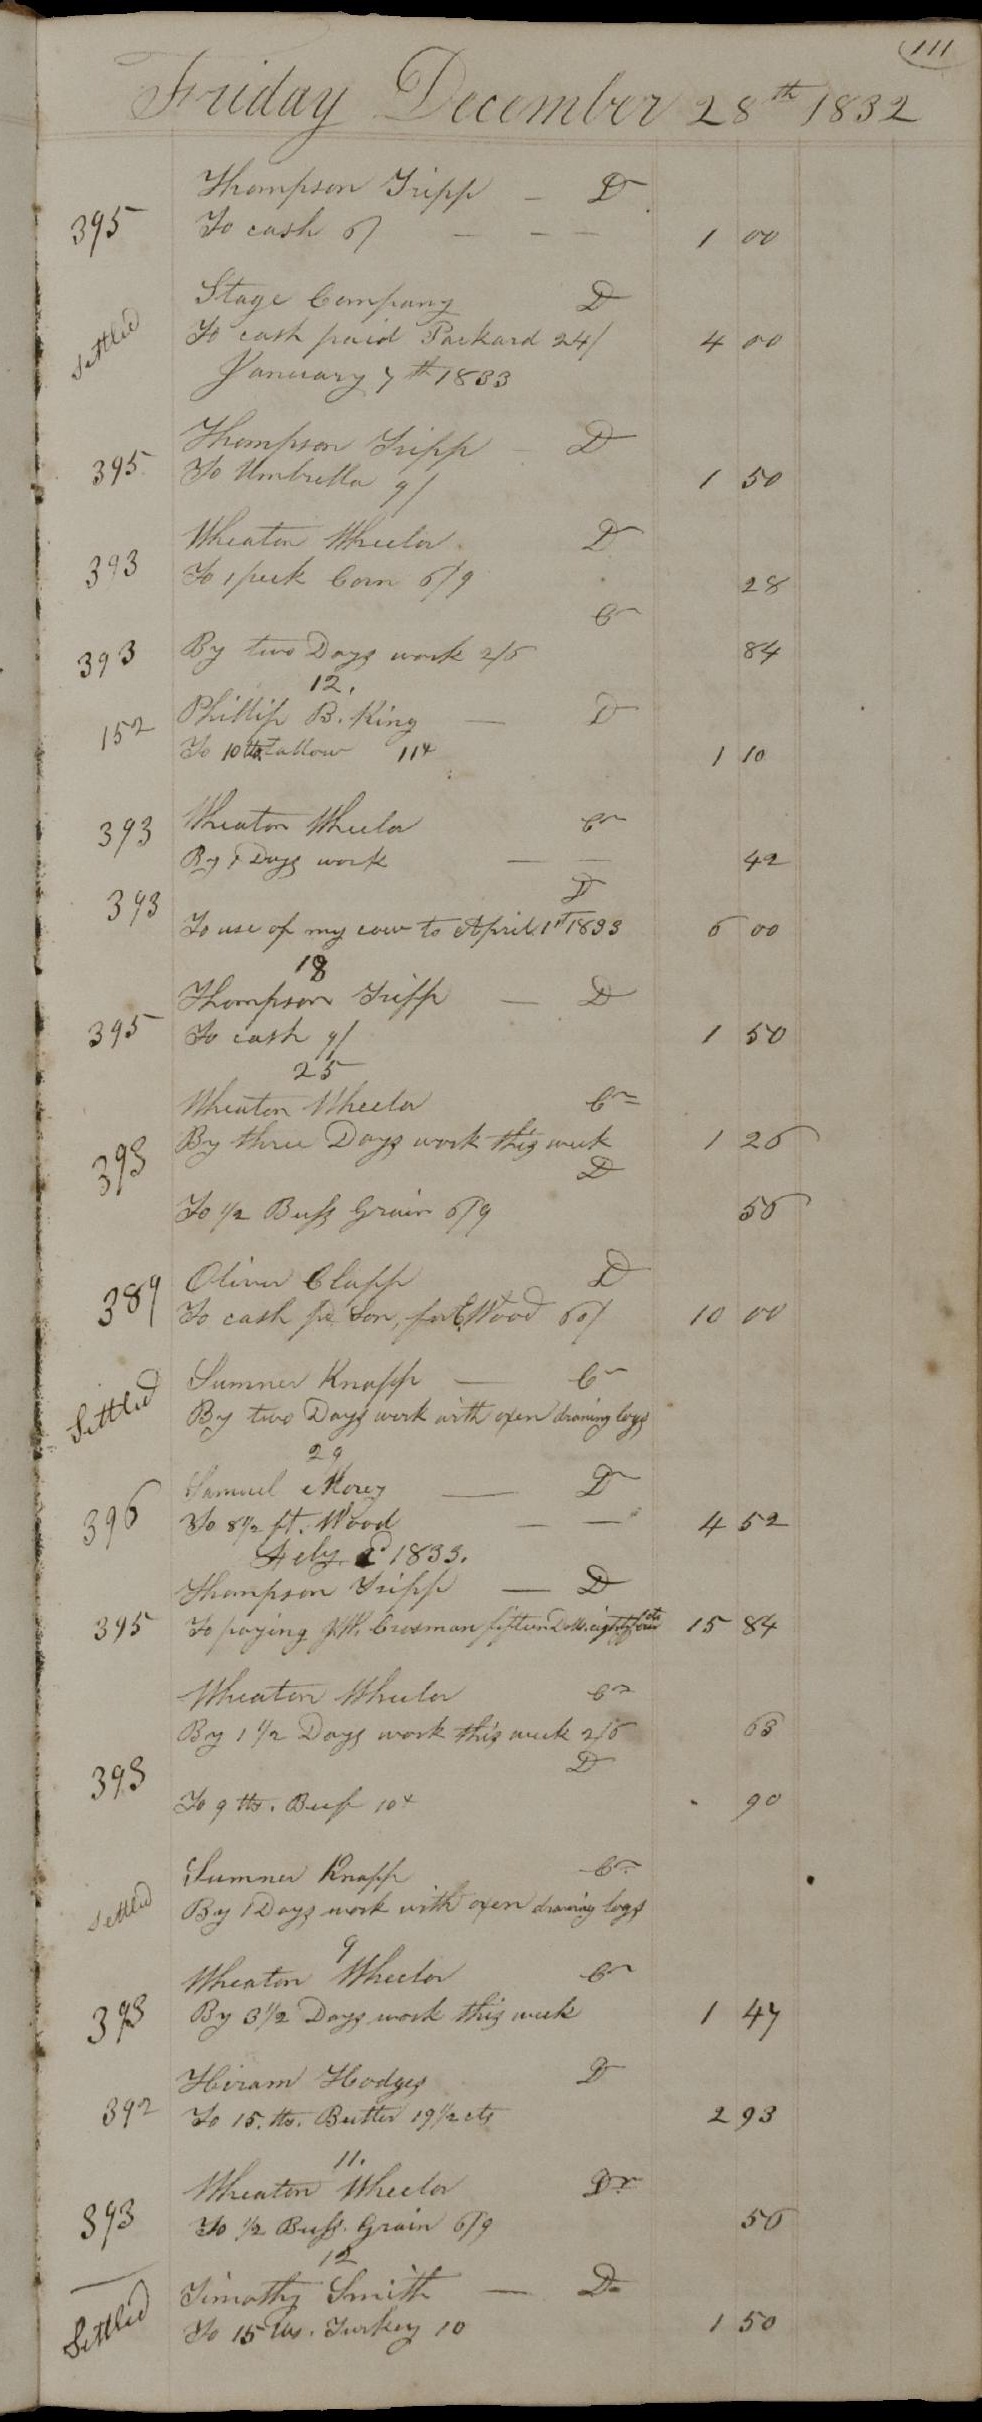 111
Friday December 28th 1832
Thompson Tripp — Dr
395 To cash 6/ — — — 1 00
Stage Company Dr
Settled To cash paid Packard 24/ 4 00
January 7th 1833
Thompson Tripp — Dr
395 To Umbrella 9/ 1 50
Wheaton Wheelor Dr
393 To 1 peck Corn 6/9 28
Cr
393 By two Days work 2/6 84
12.
152 Phillip B. King — Dr
To 10 lbs tallow 11 1 10
393 Wheaton Wheelor Cr
By 1 Days work — — 42
393 Dr
To use of my cow to April 1st 1833 6 00
18
Thompson Tripp — Dr
395 To cash 9/ 1 50
25
Wheaton Wheelor Cr
By three Days work this week 1 26
393 Dr
To 1/2 Bush Grain 6/9 56
Oliver Clapp Dr
389 To cash pr Son, for Wood 60/ 10 00
Sumner Knapp — Cr
Settled By two Days work with oxen drawing logs
29
Samuel Morey — Dr
396 To 8 1/2 ft. Wood — — 4 52
Feby 2d 1833.
Thompson Tripp — Dr
395 To paying J.W. Crosman fifteen Dolls. eighty four cts 15 84
Wheaton Wheelor Cr
By 1 1/2 Days work this week 2/6 63
393 Dr
To 9 lbs. Beef 10 90
Sumner Knapp Cr
Settled By 1 Days work with oxen drawing logs
9
Wheaton Wheelor Cr
393 By 3 1/2 Days work this week 1 47
Hiram Hodges Dr
392 To 15. lbs. Butter 19 1/2 cts 2 93
11.
Wheaton Wheelor Dr
393 To 1/2 Bush. Grain 6/9 56
12
Timothy Smith — Dr
Settled To 15 lbs. Turkey 10 1 50